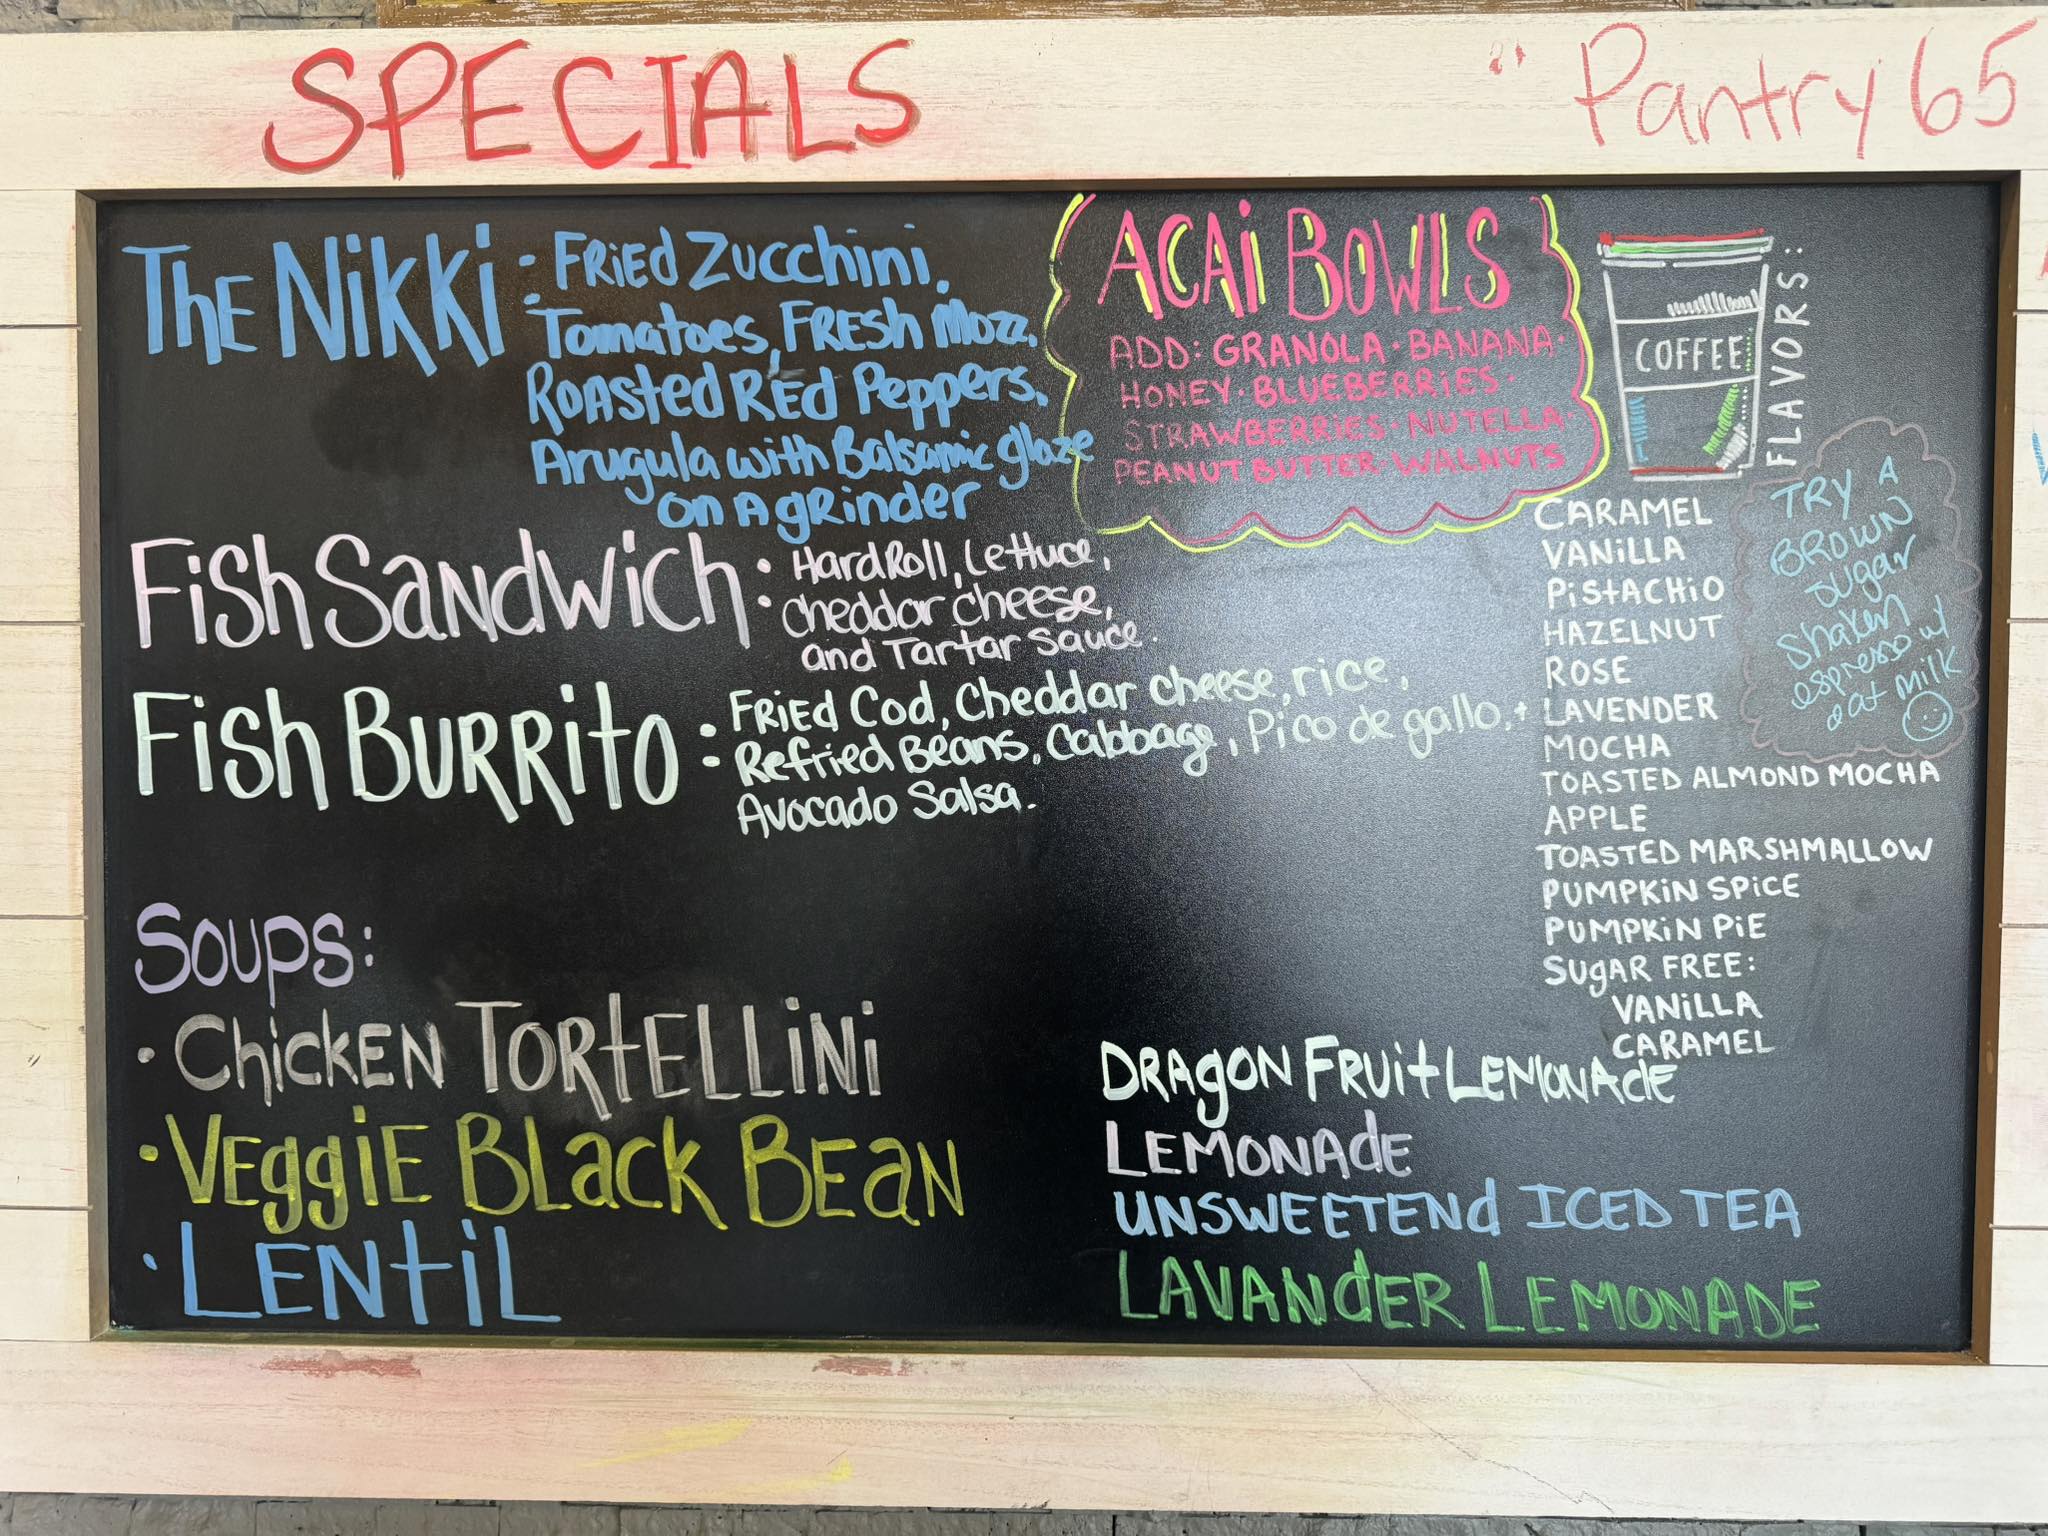 SPECIALS
" Pantry 65
The Nikki: Fried Zucchini,
Tomatoes, Fresh Mozz,
Roasted Red Peppers,
Arugula with Balsamic glaze
on A grinder
Fish Sandwich: Hard Roll, Lettuce,
Cheddar cheese,
and Tartar Sauce.
Fish Burrito: Fried Cod, Cheddar cheese, rice,
Refried Beans, Cabbage, Pico de gallo, +
Avocado Salsa.
Soups:
• Chicken Tortellini
• Veggie Black Bean
• Lentil
ACAI BOWLS
ADD: GRANOLA • BANANA •
HONEY • BLUEBERRIES •
STRAWBERRIES • NUTELLA •
PEANUT BUTTER • WALNUTS
COFFEE
FLAVORS:
CARAMEL
VANILLA
PISTACHIO
HAZELNUT
ROSE
LAVENDER
MOCHA
TOASTED ALMOND MOCHA
APPLE
TOASTED MARSHMALLOW
PUMPKIN SPICE
PUMPKIN PIE
SUGAR FREE:
VANILLA
CARAMEL
TRY A
BROWN
Sugar
Shaken
espresso w/
oat Milk
DRAGON FRUIT LEMONADE
LEMONADE
UNSWEETENED ICED TEA
LAVANDER LEMONADE